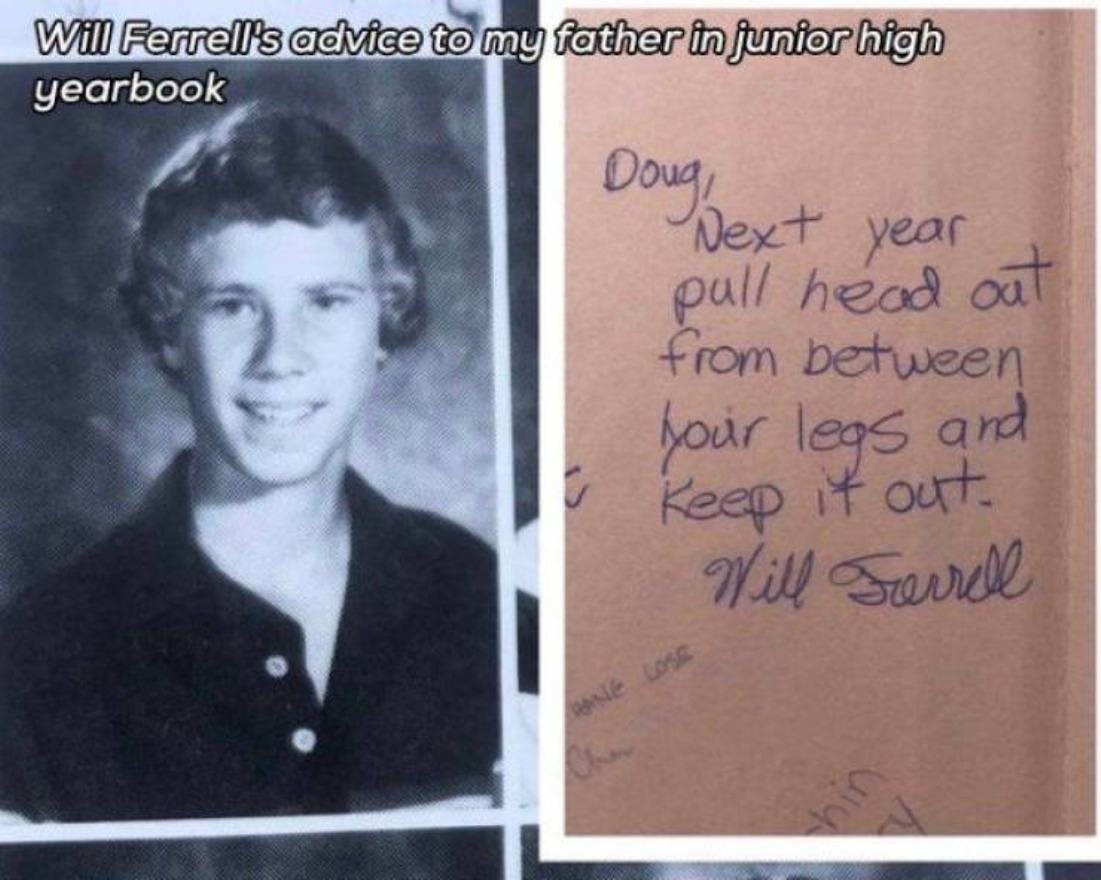 Will Ferrell's advice to my father in junior high
yearbook
Doug,
Next year
pull head out
from between
your legs and
keep it out.
Will Ferrell
LOSE